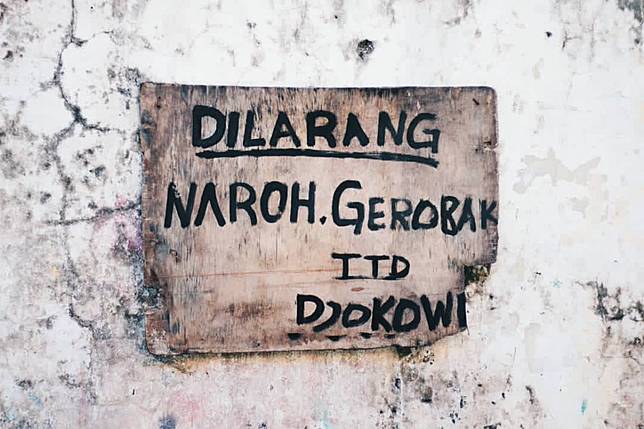 DILARANG
NAROH. GEROBAK
ITD
DJOKOWI